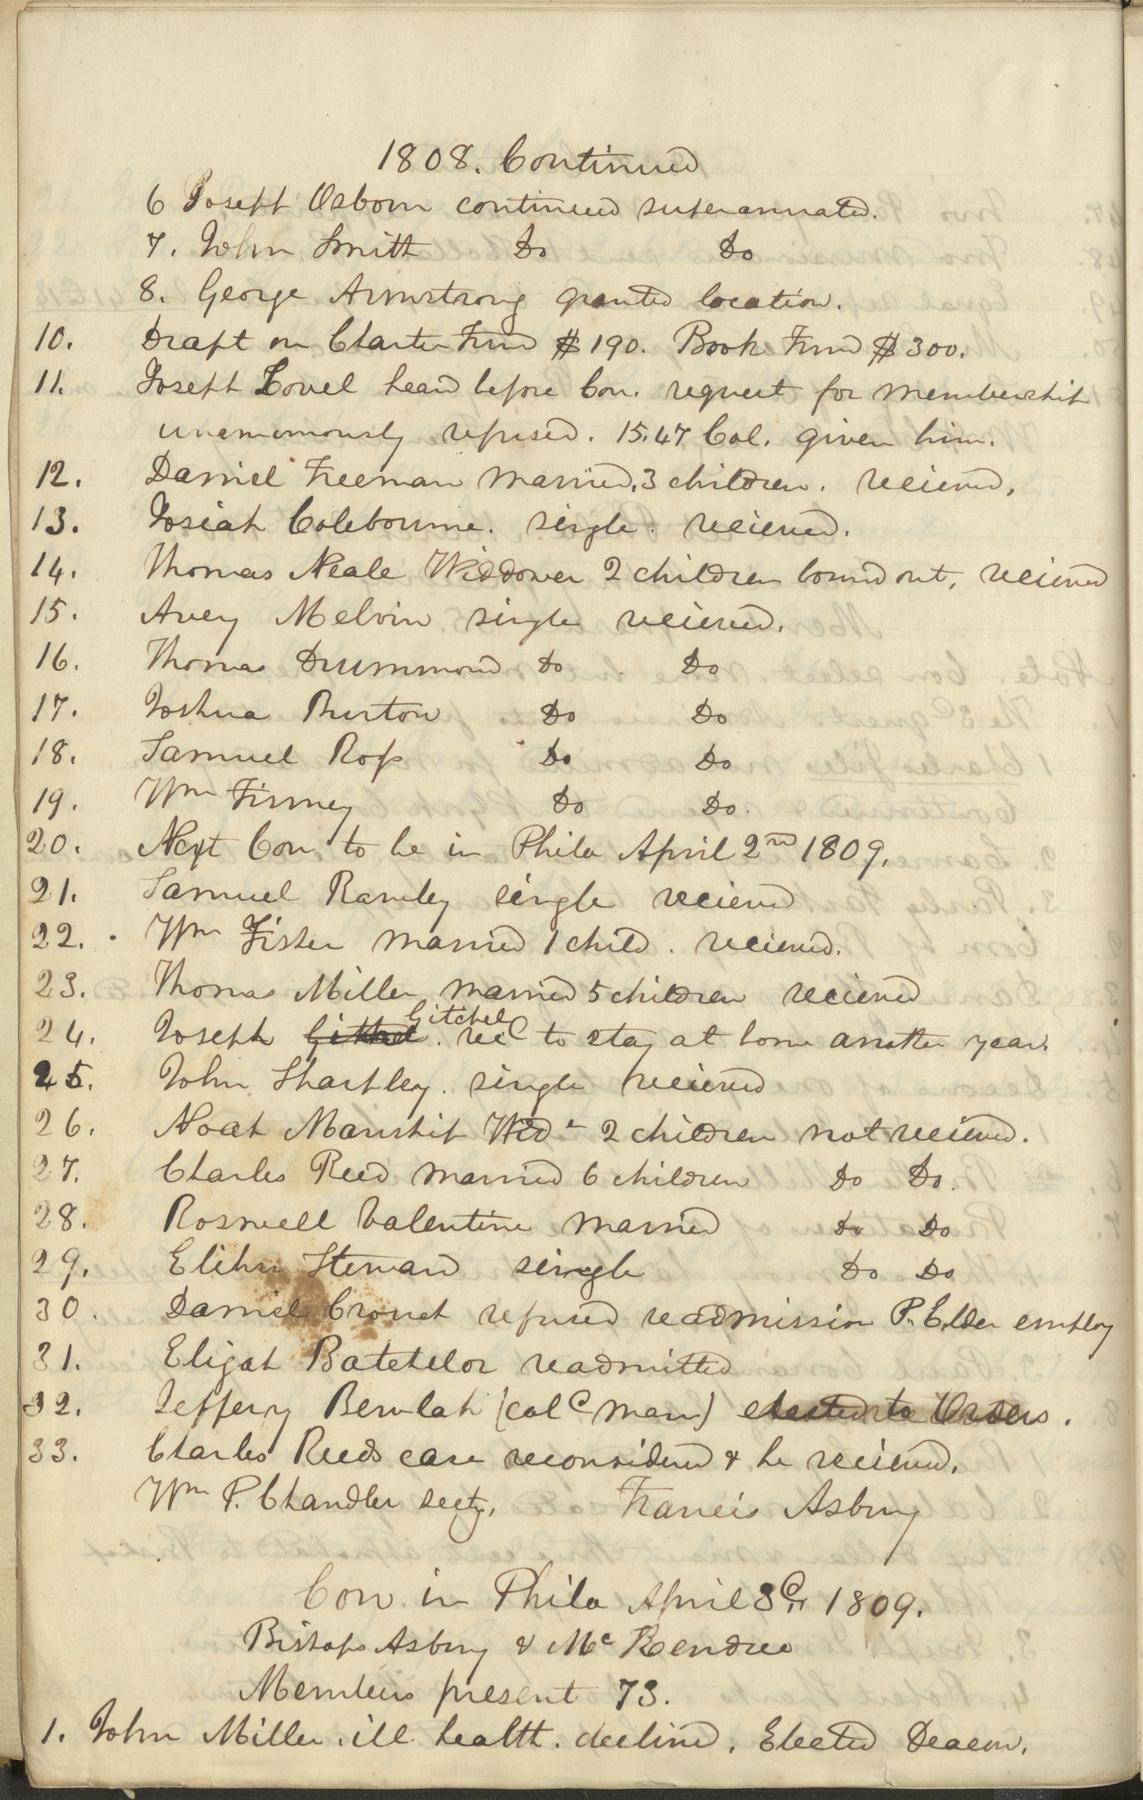 1808. Continued
6 Joseph Osborn continued superannuated.
7. John Smith Do Do
8. George Armstrong granted location.
10. Draft on Charter Fund $190. Book Fund $300.
11. Joseph Lovel heard before Con. request for membership
unanimously refused. 15.47 Col. given him.
12. Daniel Freeman married, 3 children. recieved.
13. Josiah Colebourne. single. recieved.
14. Thomas Neale Widdower 2 children bound out, recieved
15. Avery Melvin single recieved.
16. Thomas Drummond Do Do
17. Joshua Burton Do Do
18. Samuel Ross Do Do
19. Wm Finney Do Do.
20. Next Con to be in Phila April 2nd 1809.
21. Samuel Rambey single recieved
22. Wm Fisher married 1 child. recieved.
23. Thomas Miller married 5 children recieved
Gitchel
24. Joseph . recd to stay at home another year.
25. John Shartley. single recieved
26. Noah Manship Widr 2 children not recieved.
27. Charles Reed married 6 children Do Do.
28. Roswell Valentine married Do Do
29. Elihu Steward single Do Do
30. Daniel Crouch refused readmission P. Elder employ
31. Elijah Batchelor readmitted
32. Jeffery Bewlah (cold man) elected to Orders.
33. Charles Reeds case reconsidered & he recieved.
Wm P. Chandler secty. Francis Asbury
Con in Phila April 3d 1809.
Bishops Asbury & Mc Kendree
Members present 73.
1. John Miller. ill health. decline. Elected Deacon.